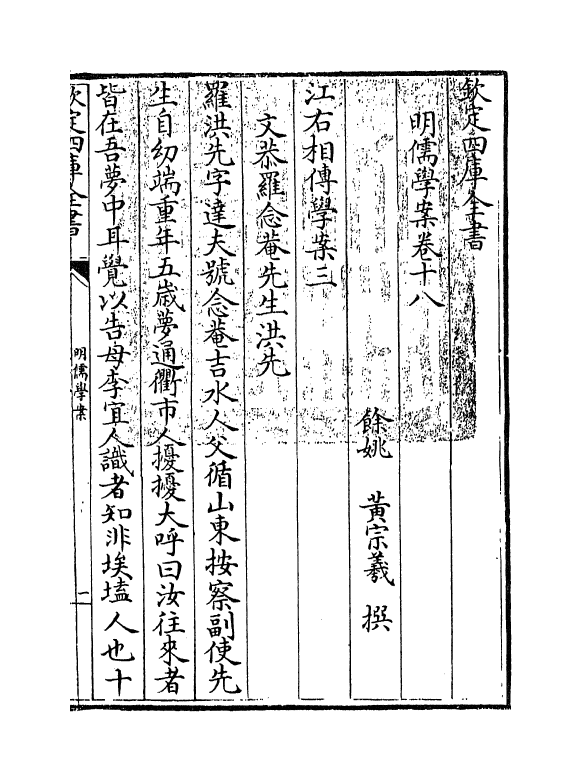 欽定四庫全書
明儒學案卷十八
餘姚 黃宗羲 撰
江右相傳學案三
文恭羅念菴先生洪先
羅洪先字達夫號念菴吉水人父循山東按察副使先
生自幼端重年五歲夢通衢市人擾擾大呼曰汝往來者
皆在吾夢中耳覺以告母李宜人識者知非埃壒人也十
欽定四庫全書
明儒學案
一